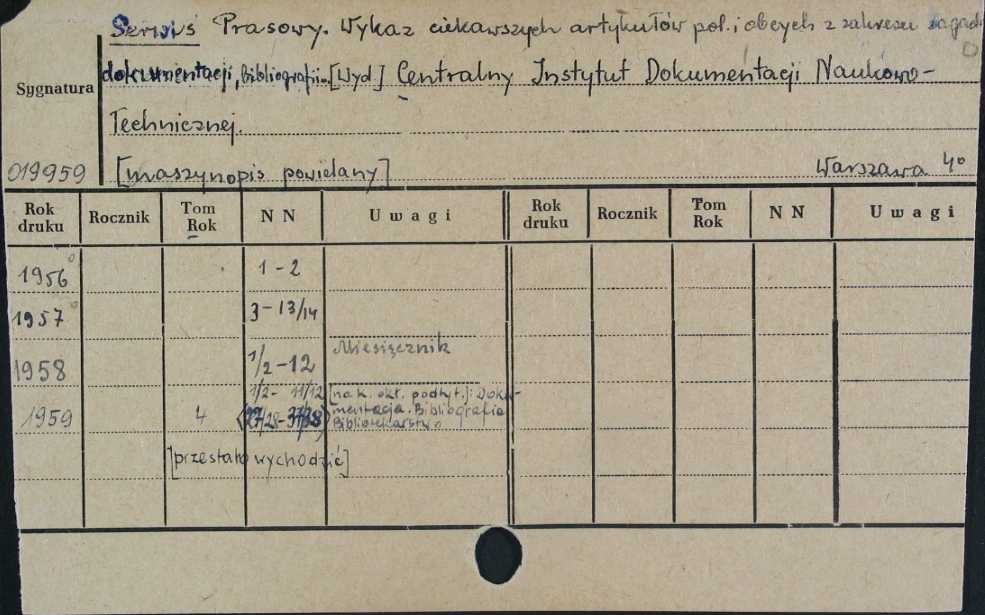 Serwis Prasowy. Wykaz ciekawszych artykułów pol. i obcych z zakresu zagad.
dokumentacji, bibliografii. [Wyd] Centralny Instytut Dokumentacji Naukowo-
Sygnatura
Technicznej.
019959 [maszynopis powielany] Warszawa 4°
Rok druku Rocznik Tom Rok NN Uwagi Rok druku Rocznik Tom Rok NN Uwagi
1956 1-2
1957 3-13/14
1958 1/2-12 Miesięcznik
1/2- 11/12 [na k. okł. podtyt.]: Doku-
1959 4 mentacja. Bibliografia
Bibliotekarstwo
[przestało wychodzić]